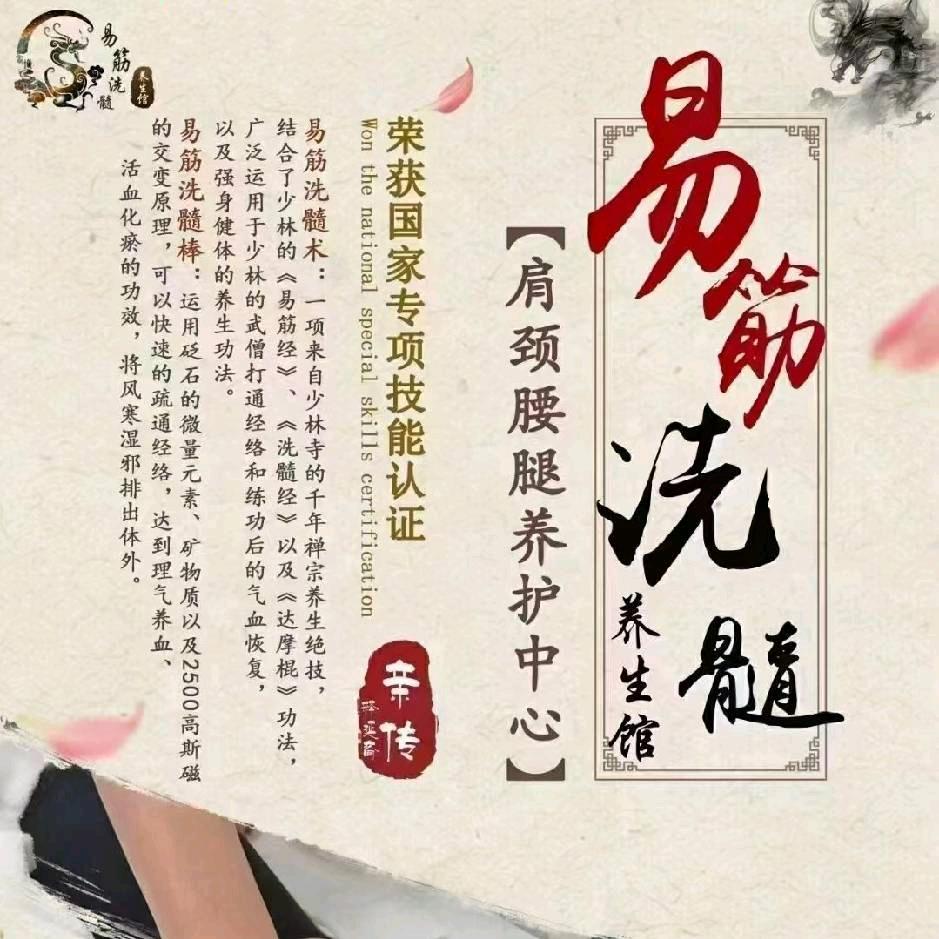 易筋洗髓
养生馆
【肩颈腰腿养护中心】
荣获国家专项技能认证
Won the national special skills certification
亲传
易筋洗髓术：一项来自少林寺的千年禅宗养生绝技，
结合了少林的《易筋经》、《洗髓经》以及《达摩棍》功法，
广泛运用于少林的武僧打通经络和练功后的气血恢复，
以及强身健体的养生功法。
易筋洗髓棒：运用砭石的微量元素、矿物质以及2500高斯磁
的交变原理，可以快速的疏通经络，达到理气养血、
活血化瘀的功效，将风寒湿邪排出体外。
易筋洗髓
养生馆